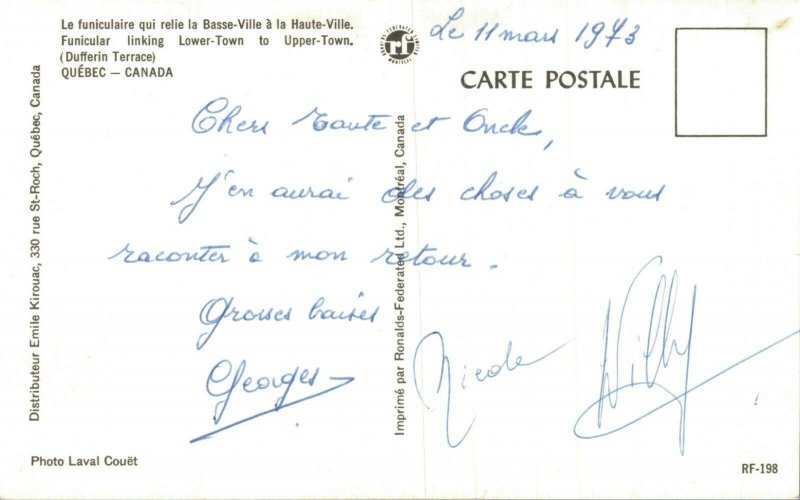 Le funiculaire qui relie la Basse-Ville à la Haute-Ville.
Funicular linking Lower-Town to Upper-Town.
(Dufferin Terrace)
QUÉBEC — CANADA
rf
Le 11 mars 1973
CARTE POSTALE
Chers tante et Oncle,
J'en aurai des choses à vous
raconter à mon retour.
Grosses baises
Georges
Nicole
Willy
Distributeur Emile Kirouac, 330 rue St-Roch, Québec, Canada
Imprimé par Ronalds-Federated Ltd., Montréal, Canada
Photo Laval Couët
RF-198